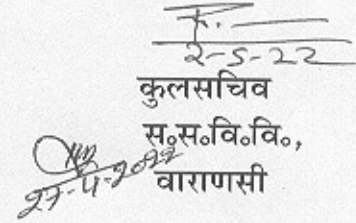 2-5-22
कुलसचिव
स०स०वि०वि०,
27-4-2022
वाराणसी